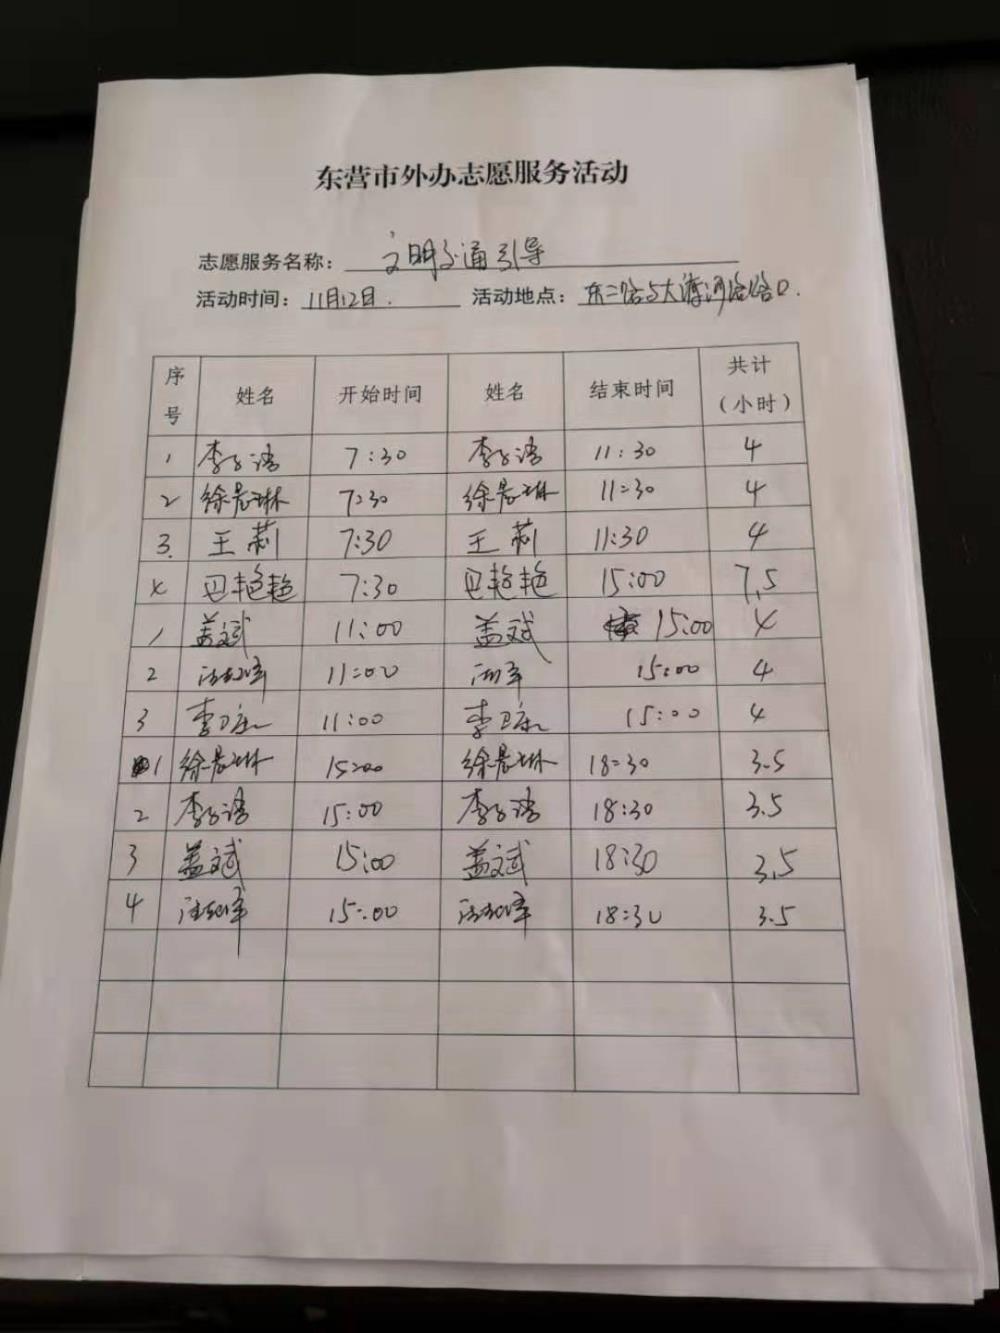 东营市外办志愿服务活动
志愿服务名称： 文明交通引导
活动时间： 11月12日. 活动地点： 东二路与大渡河路路口.
序号 姓名 开始时间 姓名 结束时间 共计（小时）
1 李 7:30 李 11:30 4
2 徐晨琳 7:30 徐晨琳 11:30 4
3. 王莉 7:30 王莉 11:30 4
4 巴艳艳 7:30 巴艳艳 15:00 7.5
1 盖斌 11:00 盖斌 15:00 4
2 11:00 15:00 4
3 李卫 11:00 李卫 15:00 4
1 徐晨琳 15:00 徐晨琳 18:30 3.5
2 李 15:00 李 18:30 3.5
3 盖斌 15:00 盖斌 18:30 3.5
4 15:00 18:30 3.5